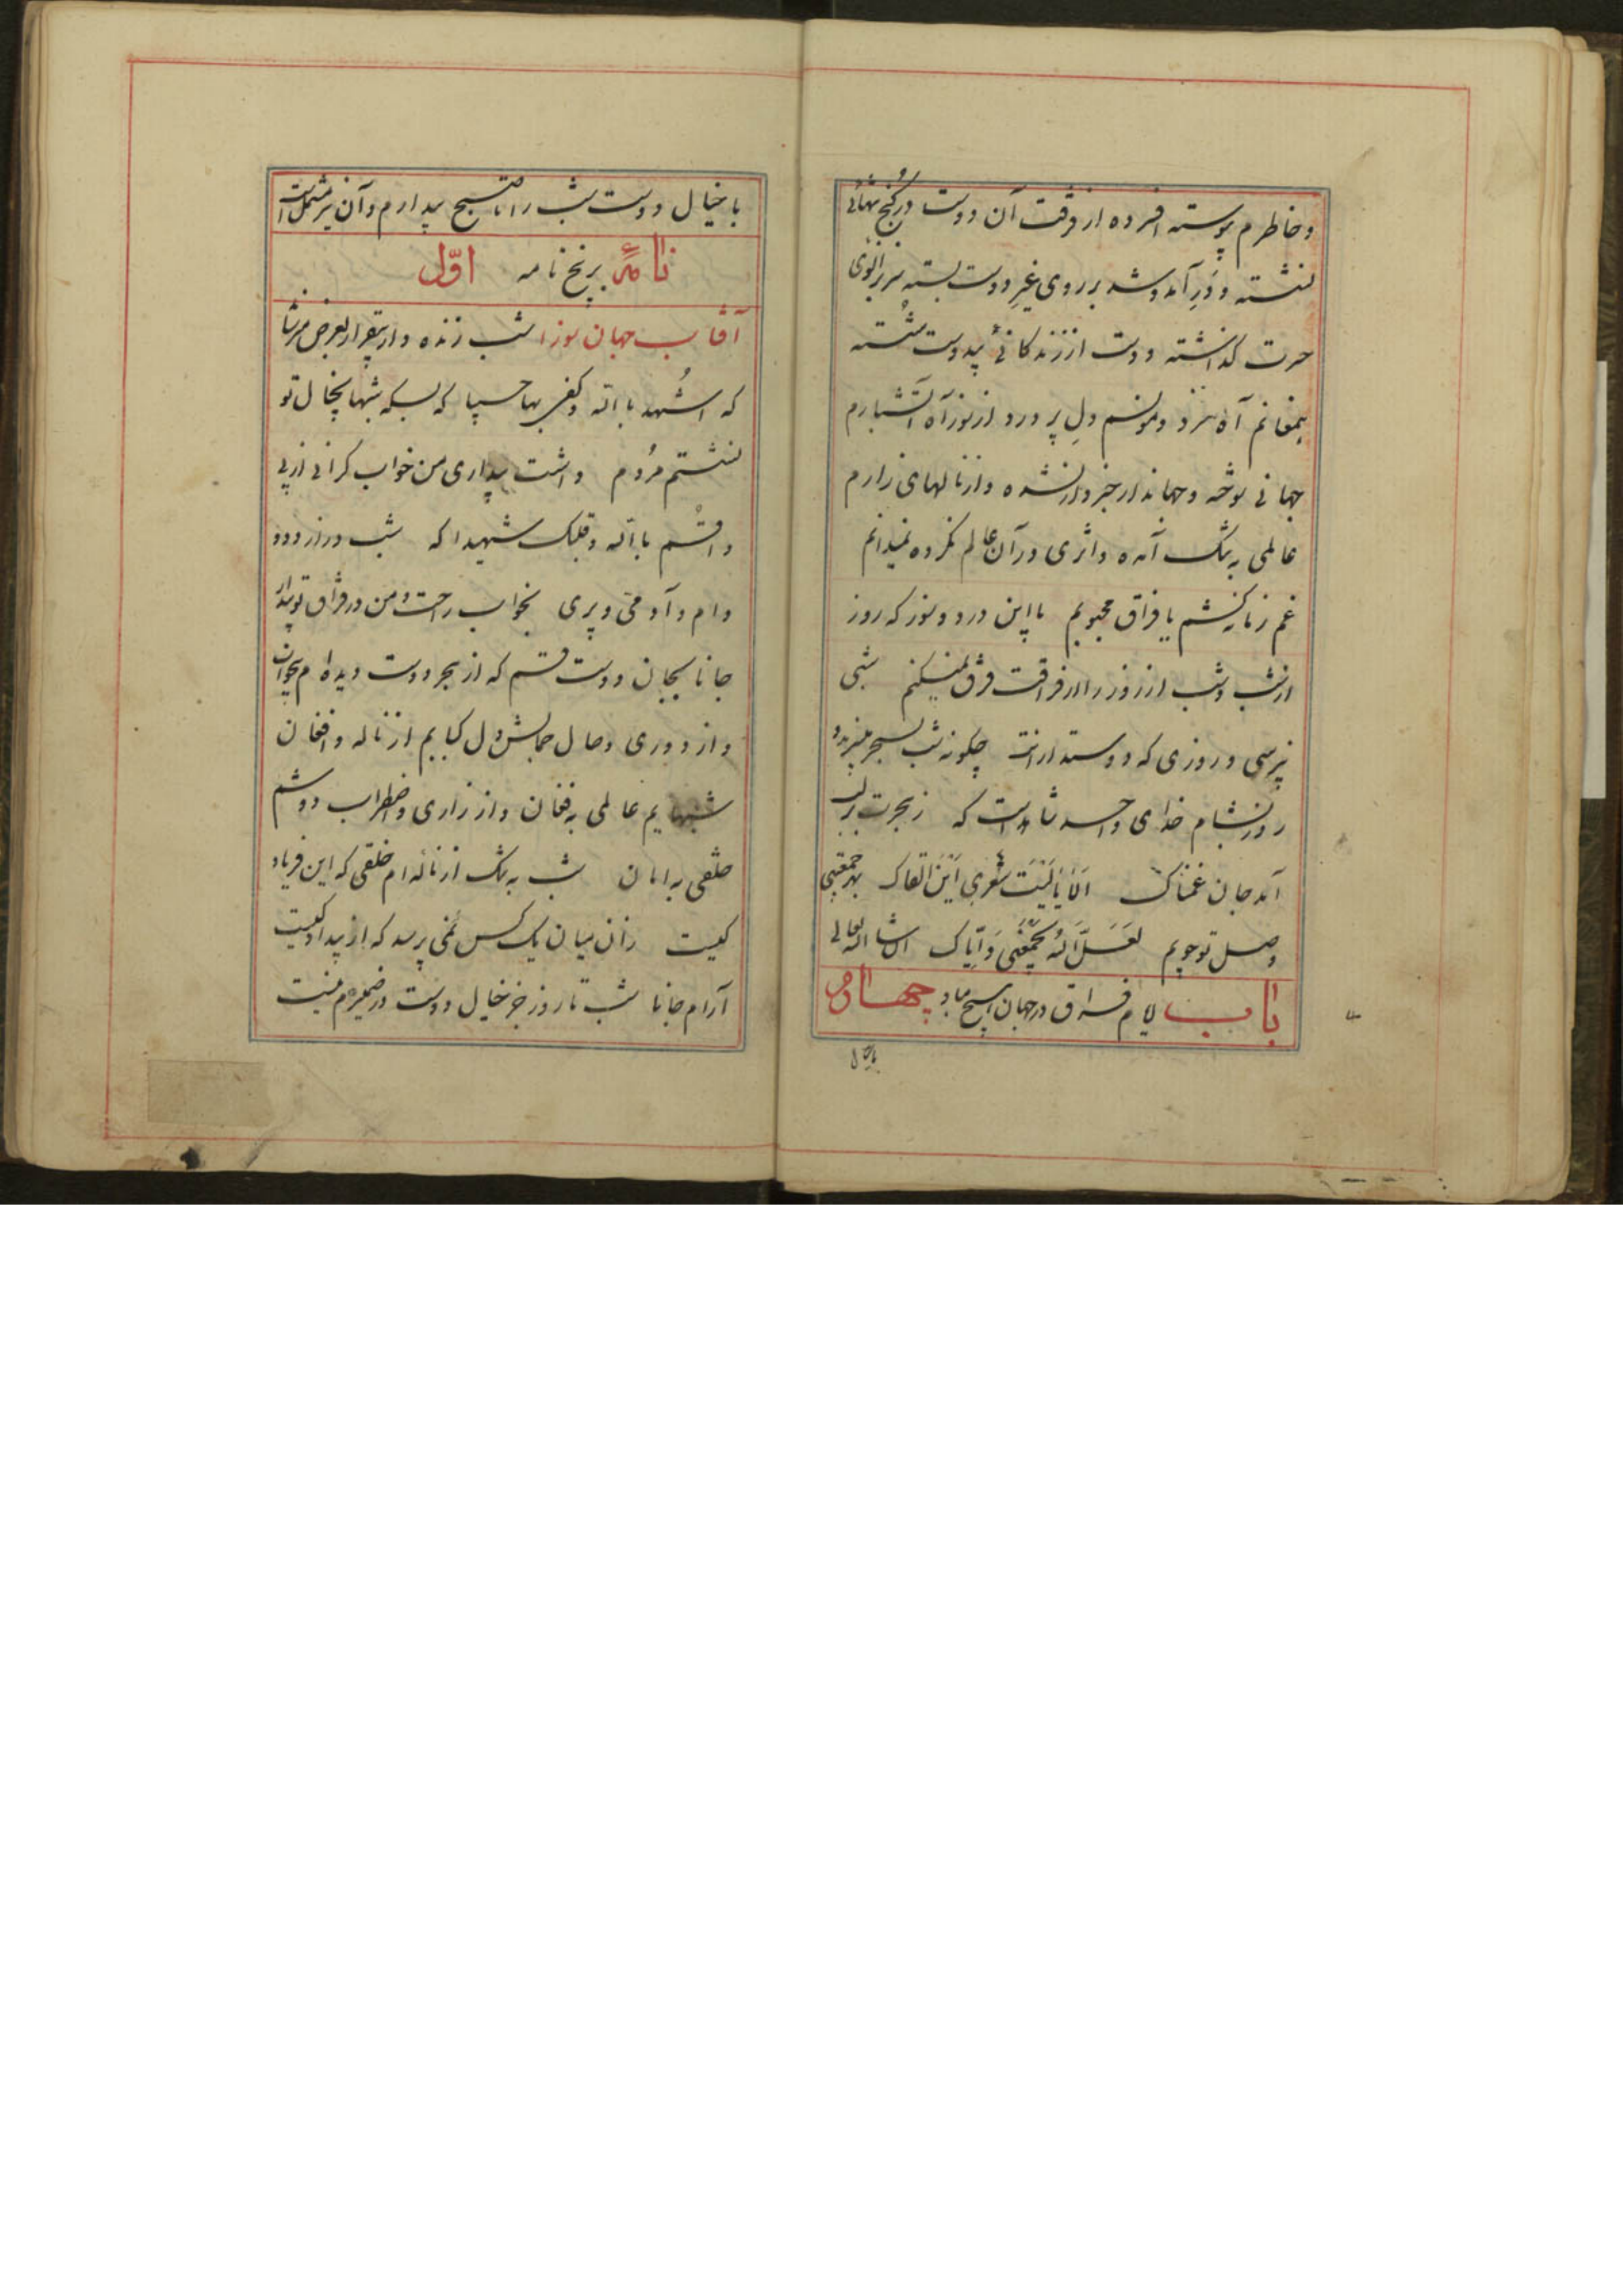 و خاطرم پیوسته افسرده از فرقت آن دوست در کنج تنهائی
نشسته و درِ آمد و شد بر روی غیرِ دوست بسته سر بزانوی
حسرت گذاشته و دست از زندگانی بیدوست شسته
آه سرد و مونسم دلِ پر درد از سوز آه آتشبارم
جهانی سوخته و جهاندار خبردار نشده و از نالهای زارم
عالمی به تنگ آمده و اثری در آن عالم نکرده نمیدانم
غم زمانه کشم یا فراق محبوبم با این درد و سوز که روز
از شب و شب از روز را از فراقت فرق نمیکنم شبی
نپرسی و روزی که دوستدارانت چگونه شب بسحر میبرند و
روز بشام خدای واحد شاهد است که ز هجرت بر لب
آمد جان غمناک اَلا یا لَیتَ شعری اَینَ القاک بهر جمعیتی
وصل تو جویم لَعَلَّ اللهَ یجمعنی وَ ایاک انشاء الله تعالی
باب لام فراق در جهان هیچ مباد چهارم
با خیال دوست شب را تا صبح بیدارم و آن نیز مشتمل است
نامهٔ بر پنج نامه اوّل
آفتاب جهان سوزا شب زنده دار بیقرار بعرض میرساند
که اشهد بالله و کفی بها حسیبا که بسکه شبها بخیال تو
نشستم مردم داشت بیداری من خواب گرانی از پی
و اقسم بالله و قلبک شهیدا که شب دراز و دد
و دام و آدمی و پری بخواب راحت و من در فراق تو بیدار
جانا بجان دوست قسم که از هجر دوست دیده ام بیخواب
و از دوری وصال جمالش دل کبابم از ناله و افغان
شبهایم عالمی به فغان و از زاری و اضطراب دوشم
خلقی به امان شب به تنگ از ناله ام خلقی که این فریاد
کیست زان میان یک کس نمی پرسد که از بیداد کیست
آرام جانا شب تا روز جز خیال دوست در ضمیرم نیست